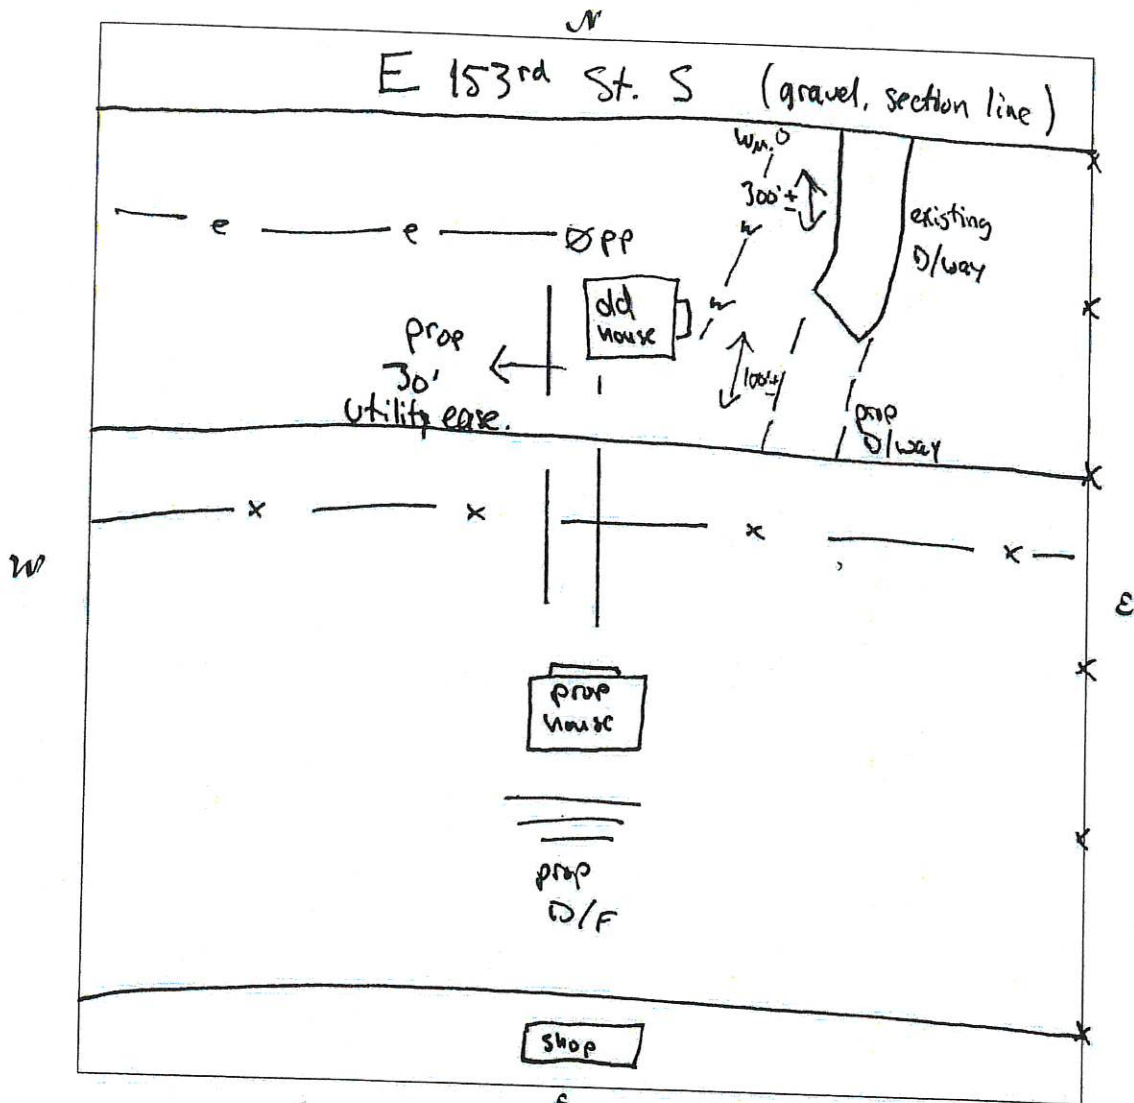 N
E 153rd St. S (gravel, section line)
WM.O
300'±
existing
D/way
e e
Ø PP
old
house
prop
30'
utility ease.
100'±
prop
D/way
x x x x
W
E
prop
house
prop
D/F
shop
S